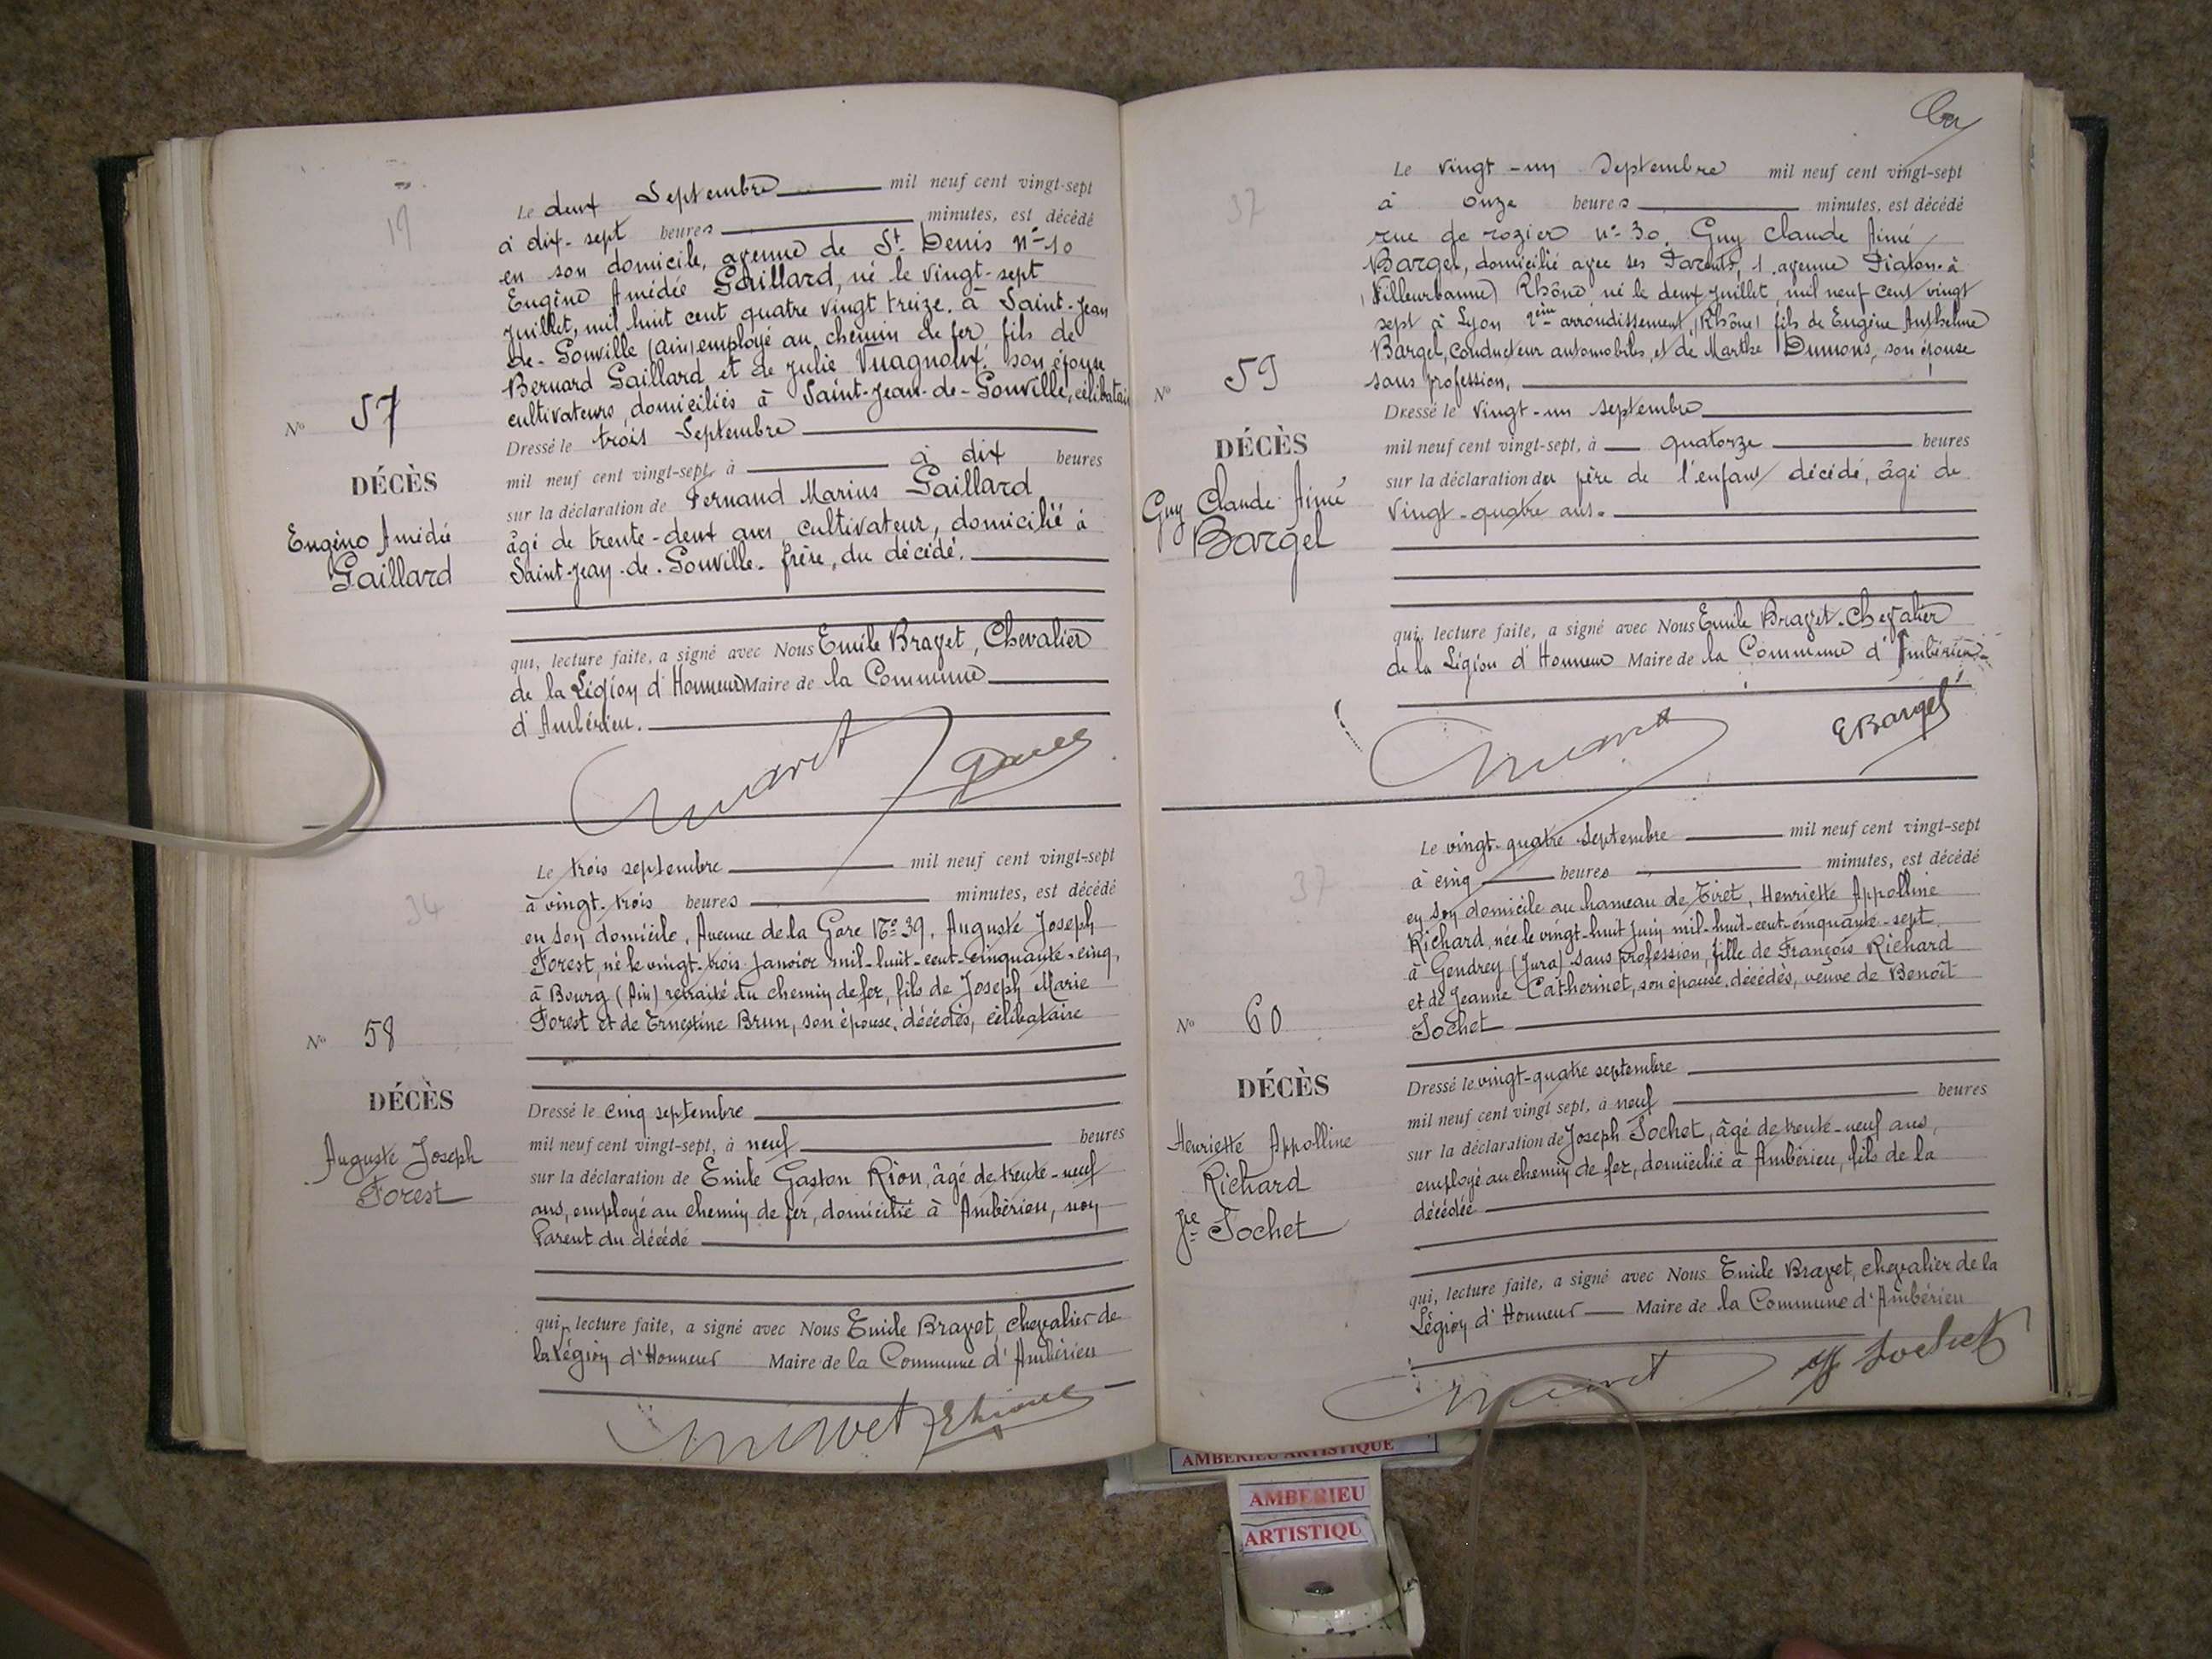 19
Le deux Septembre mil neuf cent vingt-sept
à dix-sept heures minutes, est décédé
en son domicile, avenue de St. Denis n° 10
Eugène Amédée Gaillard, né le vingt-sept
Juillet, mil huit cent quatre vingt treize. à Saint-Jean
de-Gonville (Ain) employé au chemin de fer, fils de
Bernard Gaillard et de Julie Vuagnoux, son épouse
cultivateurs, domiciliés à Saint-Jean-de-Gonville, célibataire
N° 57
Dressé le trois Septembre
mil neuf cent vingt-sept, à à dix heures
DÉCÈS
sur la déclaration de Fernand Marius Gaillard
Eugène Amédée
Gaillard
âgé de trente-deux ans, cultivateur, domicilié à
Saint-Jean-de-Gonville. frère, du décédé.
qui, lecture faite, a signé avec Nous Emile Bravet, Chevalier
de la Légion d'Honneur Maire de la Commune
d'Ambérieu.
34
Le trois septembre mil neuf cent vingt-sept
à vingt-trois heures minutes, est décédé
en son domicile, Avenue de la Gare N° 39, Auguste Joseph
Forest, né le vingt-trois Janvier mil-huit-cent-cinquante-cinq,
à Bourg (Ain) retraité du chemin de fer, fils de Joseph Marie
Forest et de Ernestine Brun, son épouse, décédés, célibataire
N° 58
DÉCÈS
Auguste Joseph
Forest
Dressé le cinq septembre
mil neuf cent vingt-sept, à neuf heures
sur la déclaration de Emile Gaston Rion, âgé de trente-neuf
ans, employé au chemin de fer, domicilié à Ambérieu, non
Parent du décédé
qui, lecture faite, a signé avec Nous Emile Bravet, chevalier de
la Légion d'Honneur Maire de la Commune d'Ambérieu
37
Le vingt-un Septembre mil neuf cent vingt-sept
à onze heures minutes, est décédé
rue de rozier n° 30. Guy Claude Aimé
Bargel, domicilié avec ses Parents, 1. avenue Piaton. à
(Villeurbanne) Rhône, né le deux Juillet, mil neuf cent vingt
sept à Lyon 2ème arrondissement, (Rhône) fils de Eugène Anthelme
Bargel, conducteur automobiles, et de Marthe Dumons, son épouse
sans profession.
N° 59
DÉCÈS
Guy Claude Aimé
Bargel
Dressé le vingt-un septembre
mil neuf cent vingt-sept, à quatorze heures
sur la déclaration du père de l'enfant décédé, âgé de
vingt-quatre ans.
qui, lecture faite, a signé avec Nous Emile Bravet. Chevalier
de la Légion d'Honneur Maire de la Commune d'Ambérieu
EBargel
37
Le vingt-quatre septembre mil neuf cent vingt-sept
à cinq heures minutes, est décédé
en son domicile au hameau de Tiret, Henriette Appolline
Richard, née le vingt-huit juin mil-huit-cent-cinquante-sept
à Gendrey (Jura) sans profession, fille de François Richard
et de Jeanne Catherinet, son épouse, décédés, veuve de Benoît
Jochet
N° 60
DÉCÈS
Henriette Appolline
Richard
Jochet
Dressé le vingt-quatre septembre
mil neuf cent vingt sept, à neuf heures
sur la déclaration de Joseph Jochet, âgé de trente-neuf ans,
employé au chemin de fer, domicilié à Ambérieu, fils de la
décédée
qui, lecture faite, a signé avec Nous Emile Bravet, chevalier de la
Légion d'Honneur Maire de la Commune d'Ambérieu
Jochet
AMBERIEU ARTISTIQUE
AMBERIEU
ARTISTIQU